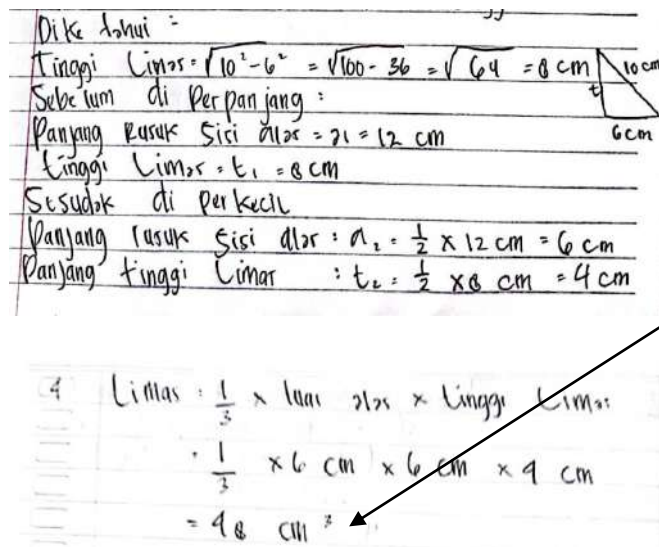 Diketahui :
Tinggi Limas = √10² - 6² = √100 - 36 = √64 = 8 cm
10 cm
t
6 cm
Sebelum di Perpanjang :
Panjang Rusuk Sisi alas = a1 = 12 cm
tinggi Limas = t₁ = 8 cm
Sesudah di Perkecil
Panjang rusuk Sisi alas : a₂ = 1/2 x 12 cm = 6 cm
Panjang tinggi Limas : t₂ = 1/2 x 8 cm = 4 cm
4 Limas = 1/3 x luas alas x tinggi Limas
= 1/3 x 6 cm x 6 cm x 4 cm
= 48 cm³